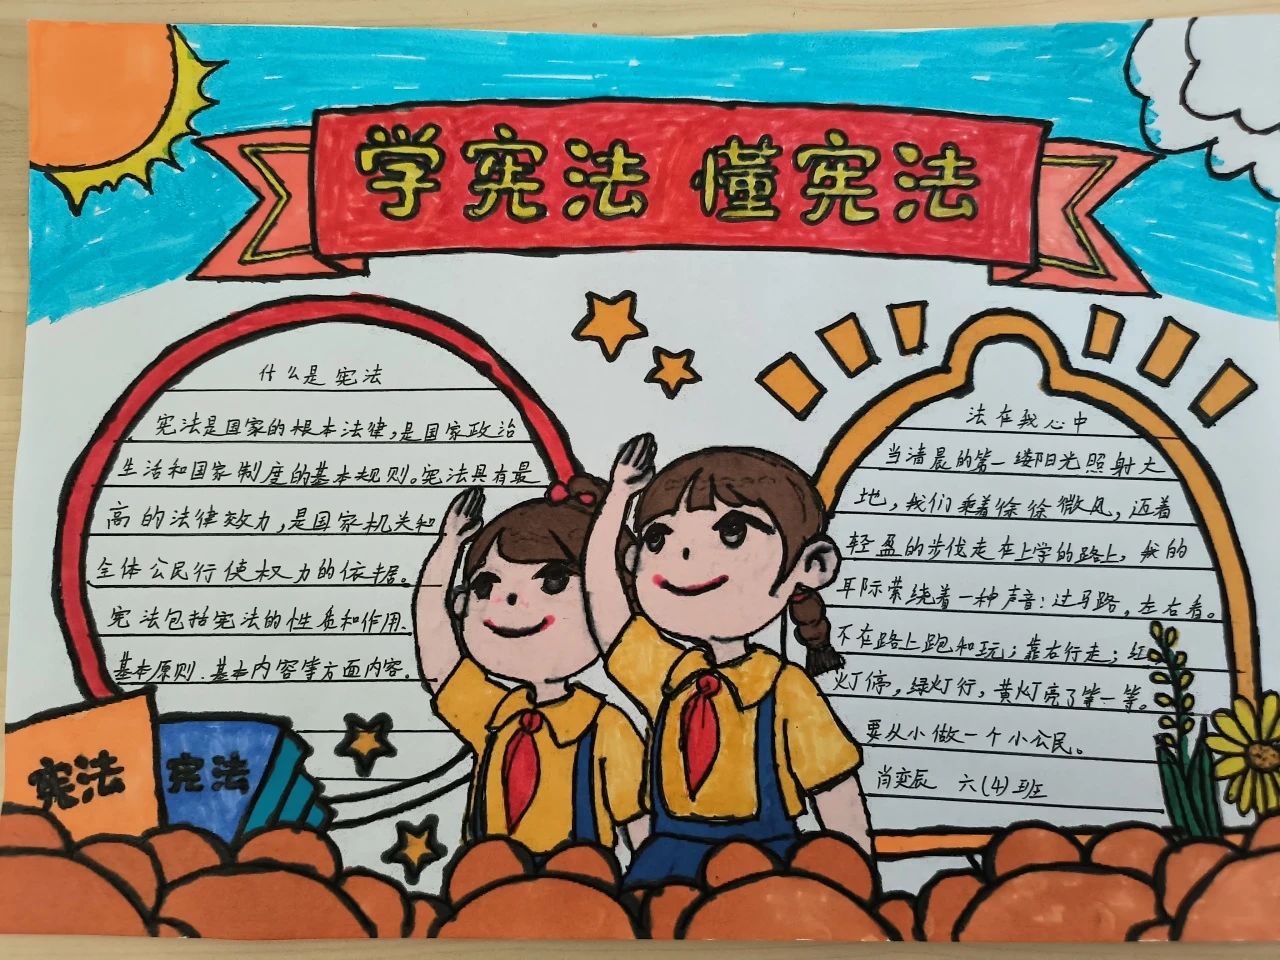 学宪法 懂宪法
什么是宪法
宪法是国家的根本法律,是国家政治
生活和国家制度的基本规则。宪法具有最
高的法律效力,是国家机关和
全体公民行使权力的依据。
宪法包括宪法的性质和作用、
基本原则、基本内容等方面内容。
宪法
宪法
法在我心中
当清晨的第一缕阳光照射大
地,我们乘着徐徐微风,迈着
轻盈的步伐走在上学的路上,我的
耳际萦绕着一种声音:过马路,左右看。
不在路上跑和玩;靠右行走;红
灯停,绿灯行,黄灯亮了等一等。
要从小做一个小公民。
肖奕辰 六(4)班